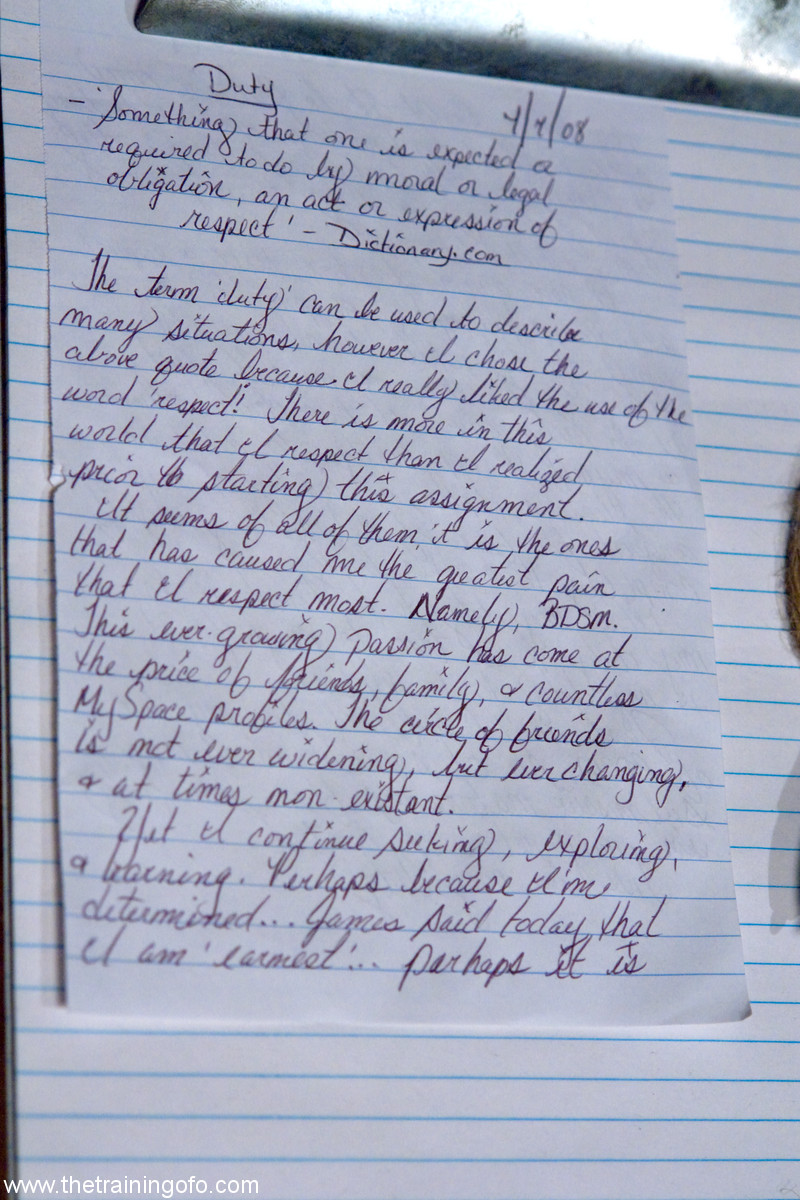 Duty
4/4/08
- 'Something that one is expected or
required to do by moral or legal
obligation, an act or expression of
respect' - Dictionary.com
The term 'duty' can be used to describe
many situations, however I chose the
above quote because I really liked the use of the
word 'respect'! There is more in this
world that I respect than I realized
prior to starting this assignment.
It seems of all of them it is the ones
that has caused me the greatest pain
that I respect most. Namely, BDSM.
This ever-growing passion has come at
the price of friends, family, & countless
MySpace profiles. The circle of friends
is not ever widening, but ever changing,
& at times non-existant.
Yet I continue seeking, exploring,
& learning. Perhaps because I'me
determined... James said today that
I am 'earnest'... perhaps it is
www.thetrainingofo.com